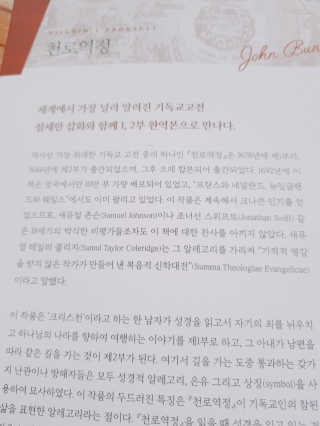 PILGRIM'S PROGRESS
천로역정
John Bun
세계에서 가장 널리 알려진 기독교고전
섬세한 삽화와 함께 1, 2부 완역본으로 만나다.
역사상 가장 위대한 기독교 고전 중의 하나인 『천로역정』은 1678년에 제1부가,
1684년에 제2부가 출간되었으며, 그후 으레 합본되어 출간되었다. 1692년에 이
책은 영국에서만 10만 부 가량 배포되어 있었고, "프랑스와 네덜란드, 뉴잉글랜
드와 웨일스"에서도 이미 팔리고 있었다. 이 작품은 계속해서 크나큰 인기를 얻
었으므로, 새뮤얼 존슨(Samuel Johnson)이나 조너선 스위프트(Jonathan Swift) 같
은 18세기의 박식한 비평가들조차도 이 책에 대한 찬사를 아끼지 않았다. 새뮤
얼 테일러 콜리지(Samul Taylor Coleridge)는 그 알레고리를 가리켜 "기적적 영감
을 받지 않은 작가가 만들어 낸 복음적 신학대전"(Summa Theologiae Evangelicae)
이라고 말했다.
이 작품은 '크리스천'이라고 하는 한 남자가 성경을 읽고서 자기의 죄를 뉘우치
고 하나님의 나라를 향하여 여행하는 이야기를 제1부로 하고, 그 아내가 남편을
따라 같은 길을 가는 것이 제2부가 된다. 여기서 길을 가는 도중 통과하는 갖가
지 난관이나 방해자들은 모두 성경적 알레고리, 은유 그리고 상징(symbol)을 사
용하여 묘사하였다. 이 작품의 두드러진 특징은 『천로역정』이 기독교인의 참된
삶을 표현한 알레고리라는 점이다. 『천로역정』을 읽을 때 성경을 읽고 있는